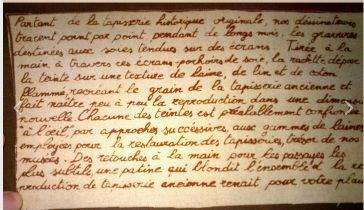 Partant de la tapisserie historique originale, nos dessinateurs
tracent point par point pendant de longs mois, les gravures
destinées aux soies tendues sur des écrans. Tirée à la
main à travers ces écrans-pochoirs de soie, la raclette dépose
la teinte sur une texture de laine, de lin et de coton
flammé, recréant le grain de la tapisserie ancienne et
fait naître peu à peu la reproduction dans une
nouvelle. Chacune des teintes est préalablement
"à l'oeil" par approches successives aux gammes de laines
employées pour la restauration des tapisseries, trésor de nos
musées. Des retouches à la main pour les passages les
plus subtils, une patine qui blondit l'ensemble et la
tapisserie ancienne renaît pour votre